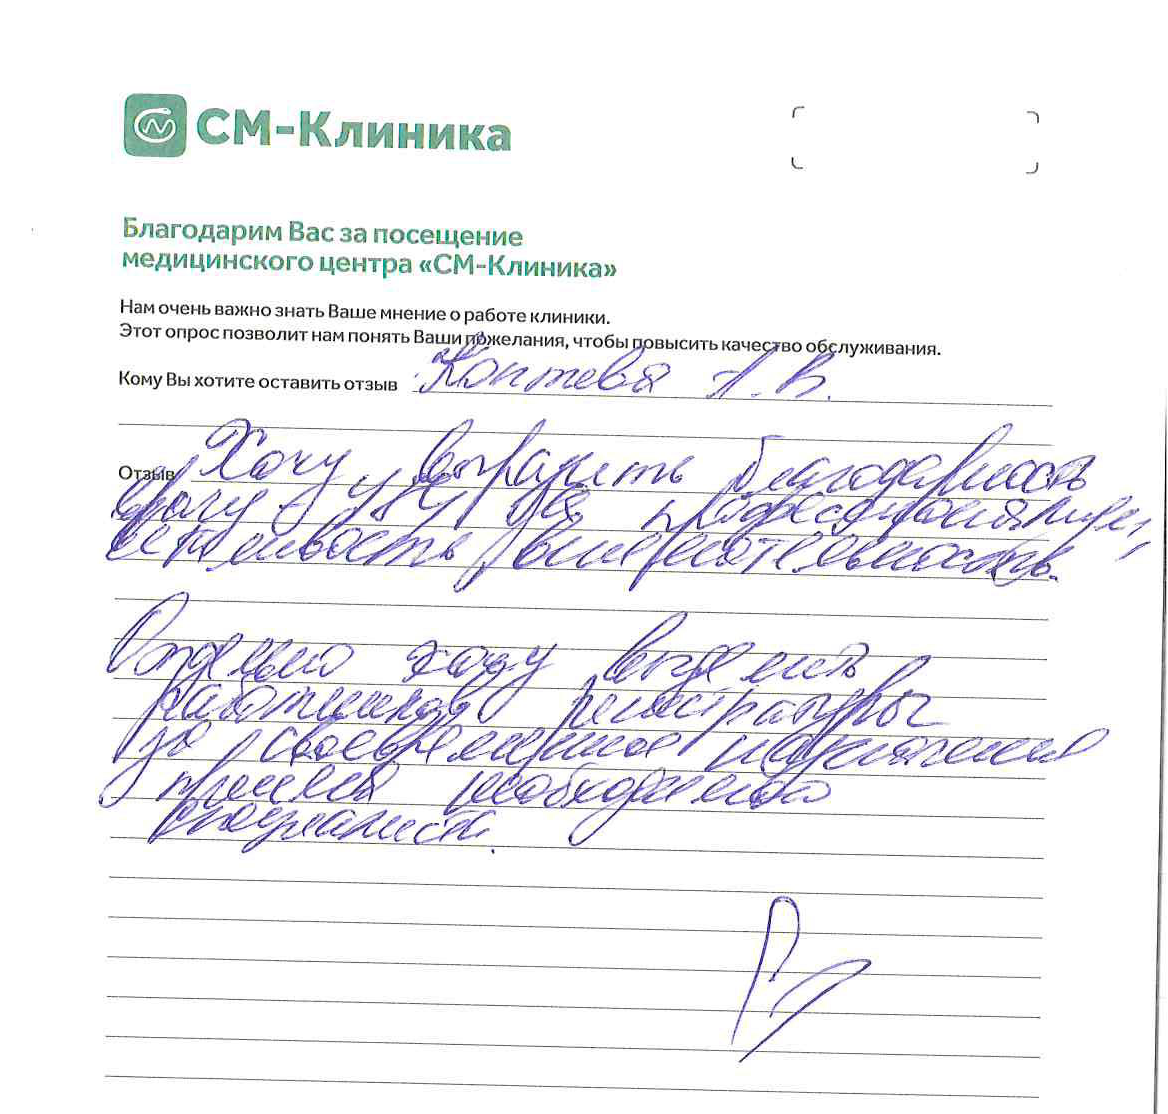 СМ-Клиника
Благодарим Вас за посещение
медицинского центра «СМ-Клиника»
Нам очень важно знать Ваше мнение о работе клиники.
Этот опрос позволит нам понять Ваши пожелания, чтобы повысить качество обслуживания.
Кому Вы хотите оставить отзыв Коптева А.В.
Отзыв Хочу выразить благодарность
врачу УЗИ за профессионализм,
вежливость, внимательность.
Отдельно хочу выделить
работников регистратуры
за своевременное назначение
приема необходимого
специалиста.